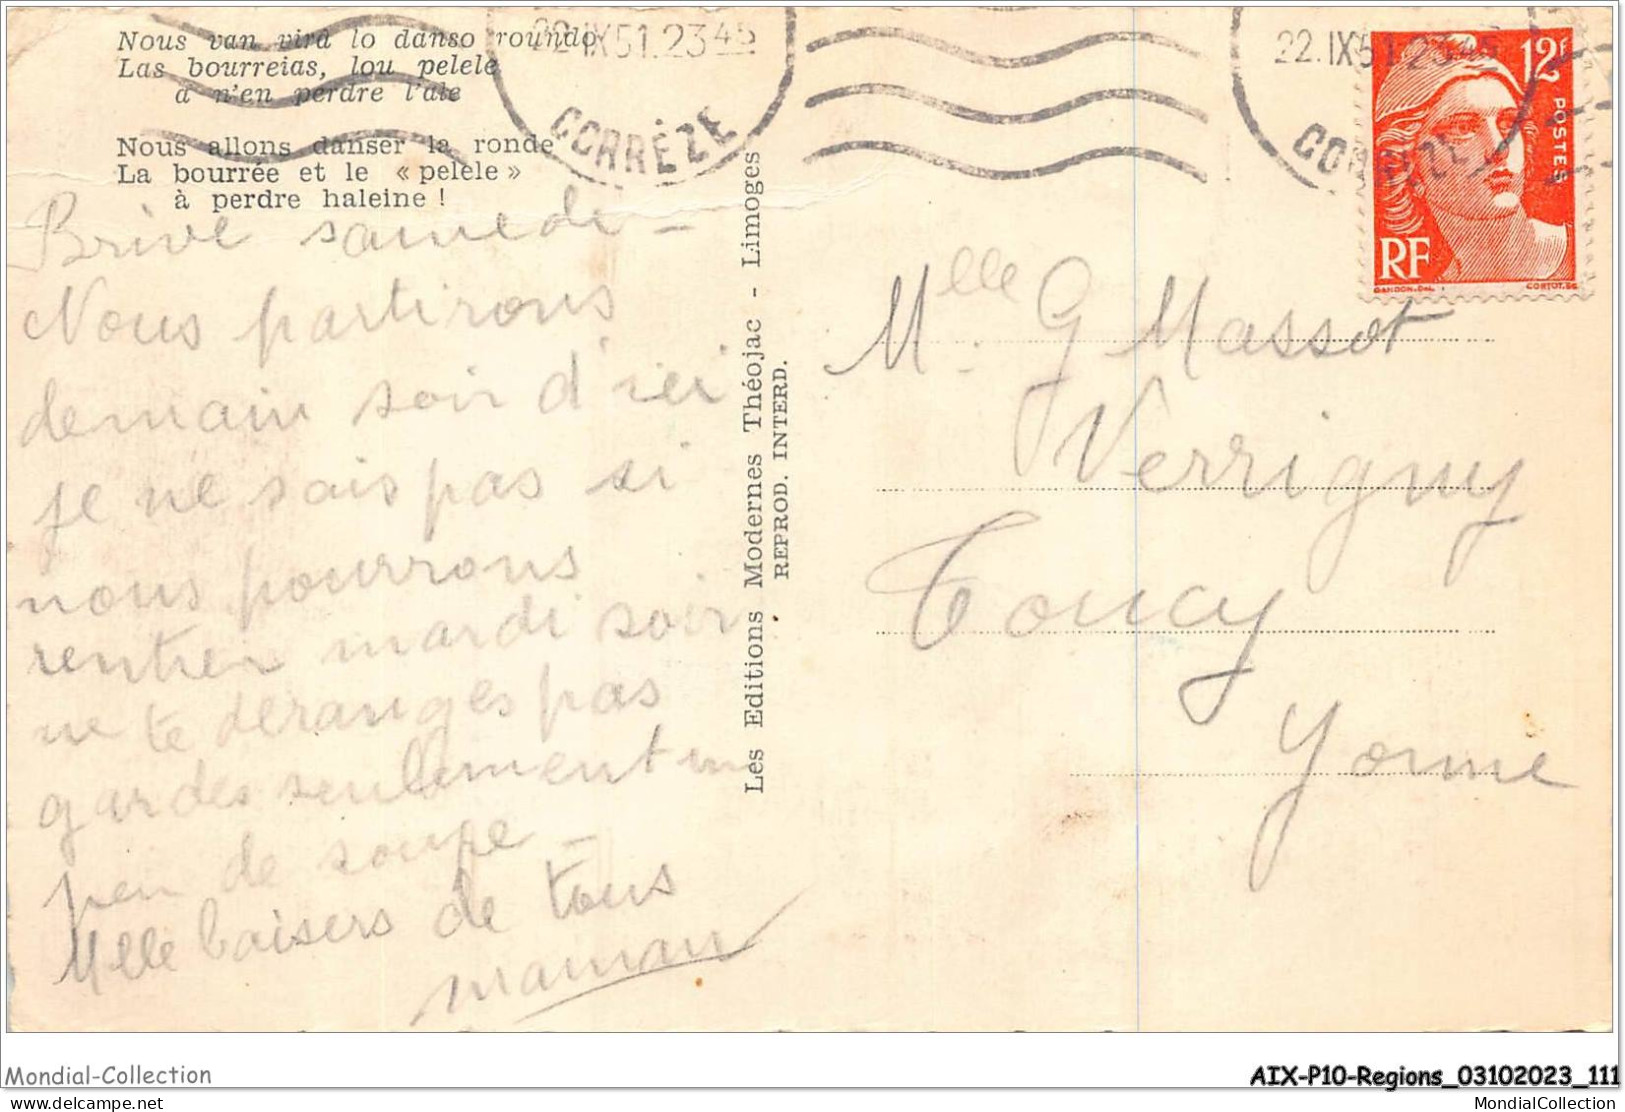 Nous van virâ lo danso roundo
Las bourreias, lou pelele
a n'en perdre l'ale
Nous allons danser la ronde
La bourrée et le « pelele »
à perdre haleine !
22.IX51.2345
CORRÈZE
22.IX51.2345
CORREZE
12F
POSTES
RF
GANDON.DEL.
CORTOT.SC
Brive samedi –
Nous partirons
demain soir d'ici
je ne sais pas si
nous pourrons
rentrer mardi soir
ne te déranges pas
gardes seulement un
peu de soupe –
Mlle baisers de tous
maman
Les Editions Modernes Théojac - Limoges
REPROD. INTERD.
Mlle. G Massot
Verrigny
Toucy
Yonne
Mondial-Collection
AIX-P10-Regions_03102023_111
www.delcampe.net
MondialCollection